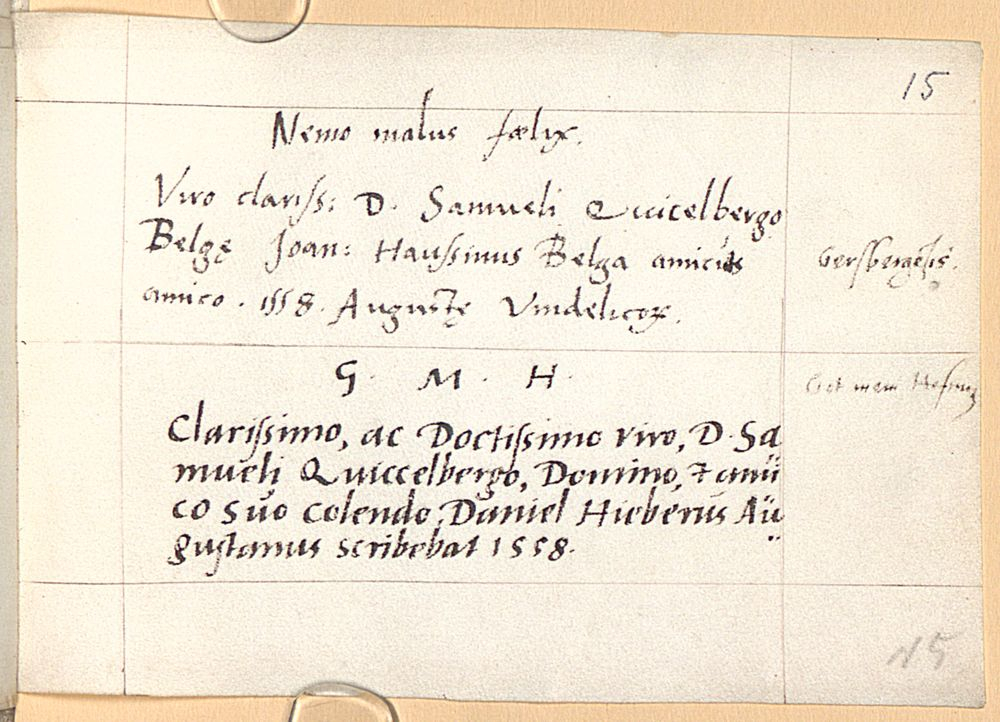 15
Nemo malus fœlix.
Viro clariss: D. Samueli Quicelbergo
Belgę Joan: Haussinus Belga amicus
amico. 1558. Augustę Vindelicoꝝ.
Gersbergēsis.
G. M. H.
Got mein Hofnung
Clarissimo, ac Doctissimo viro, D. Sa
mueli Quiccelbergo, Domino, & ami
co suo colendo, Daniel Hieberus Au
gustanus scribebat 1558.
N5